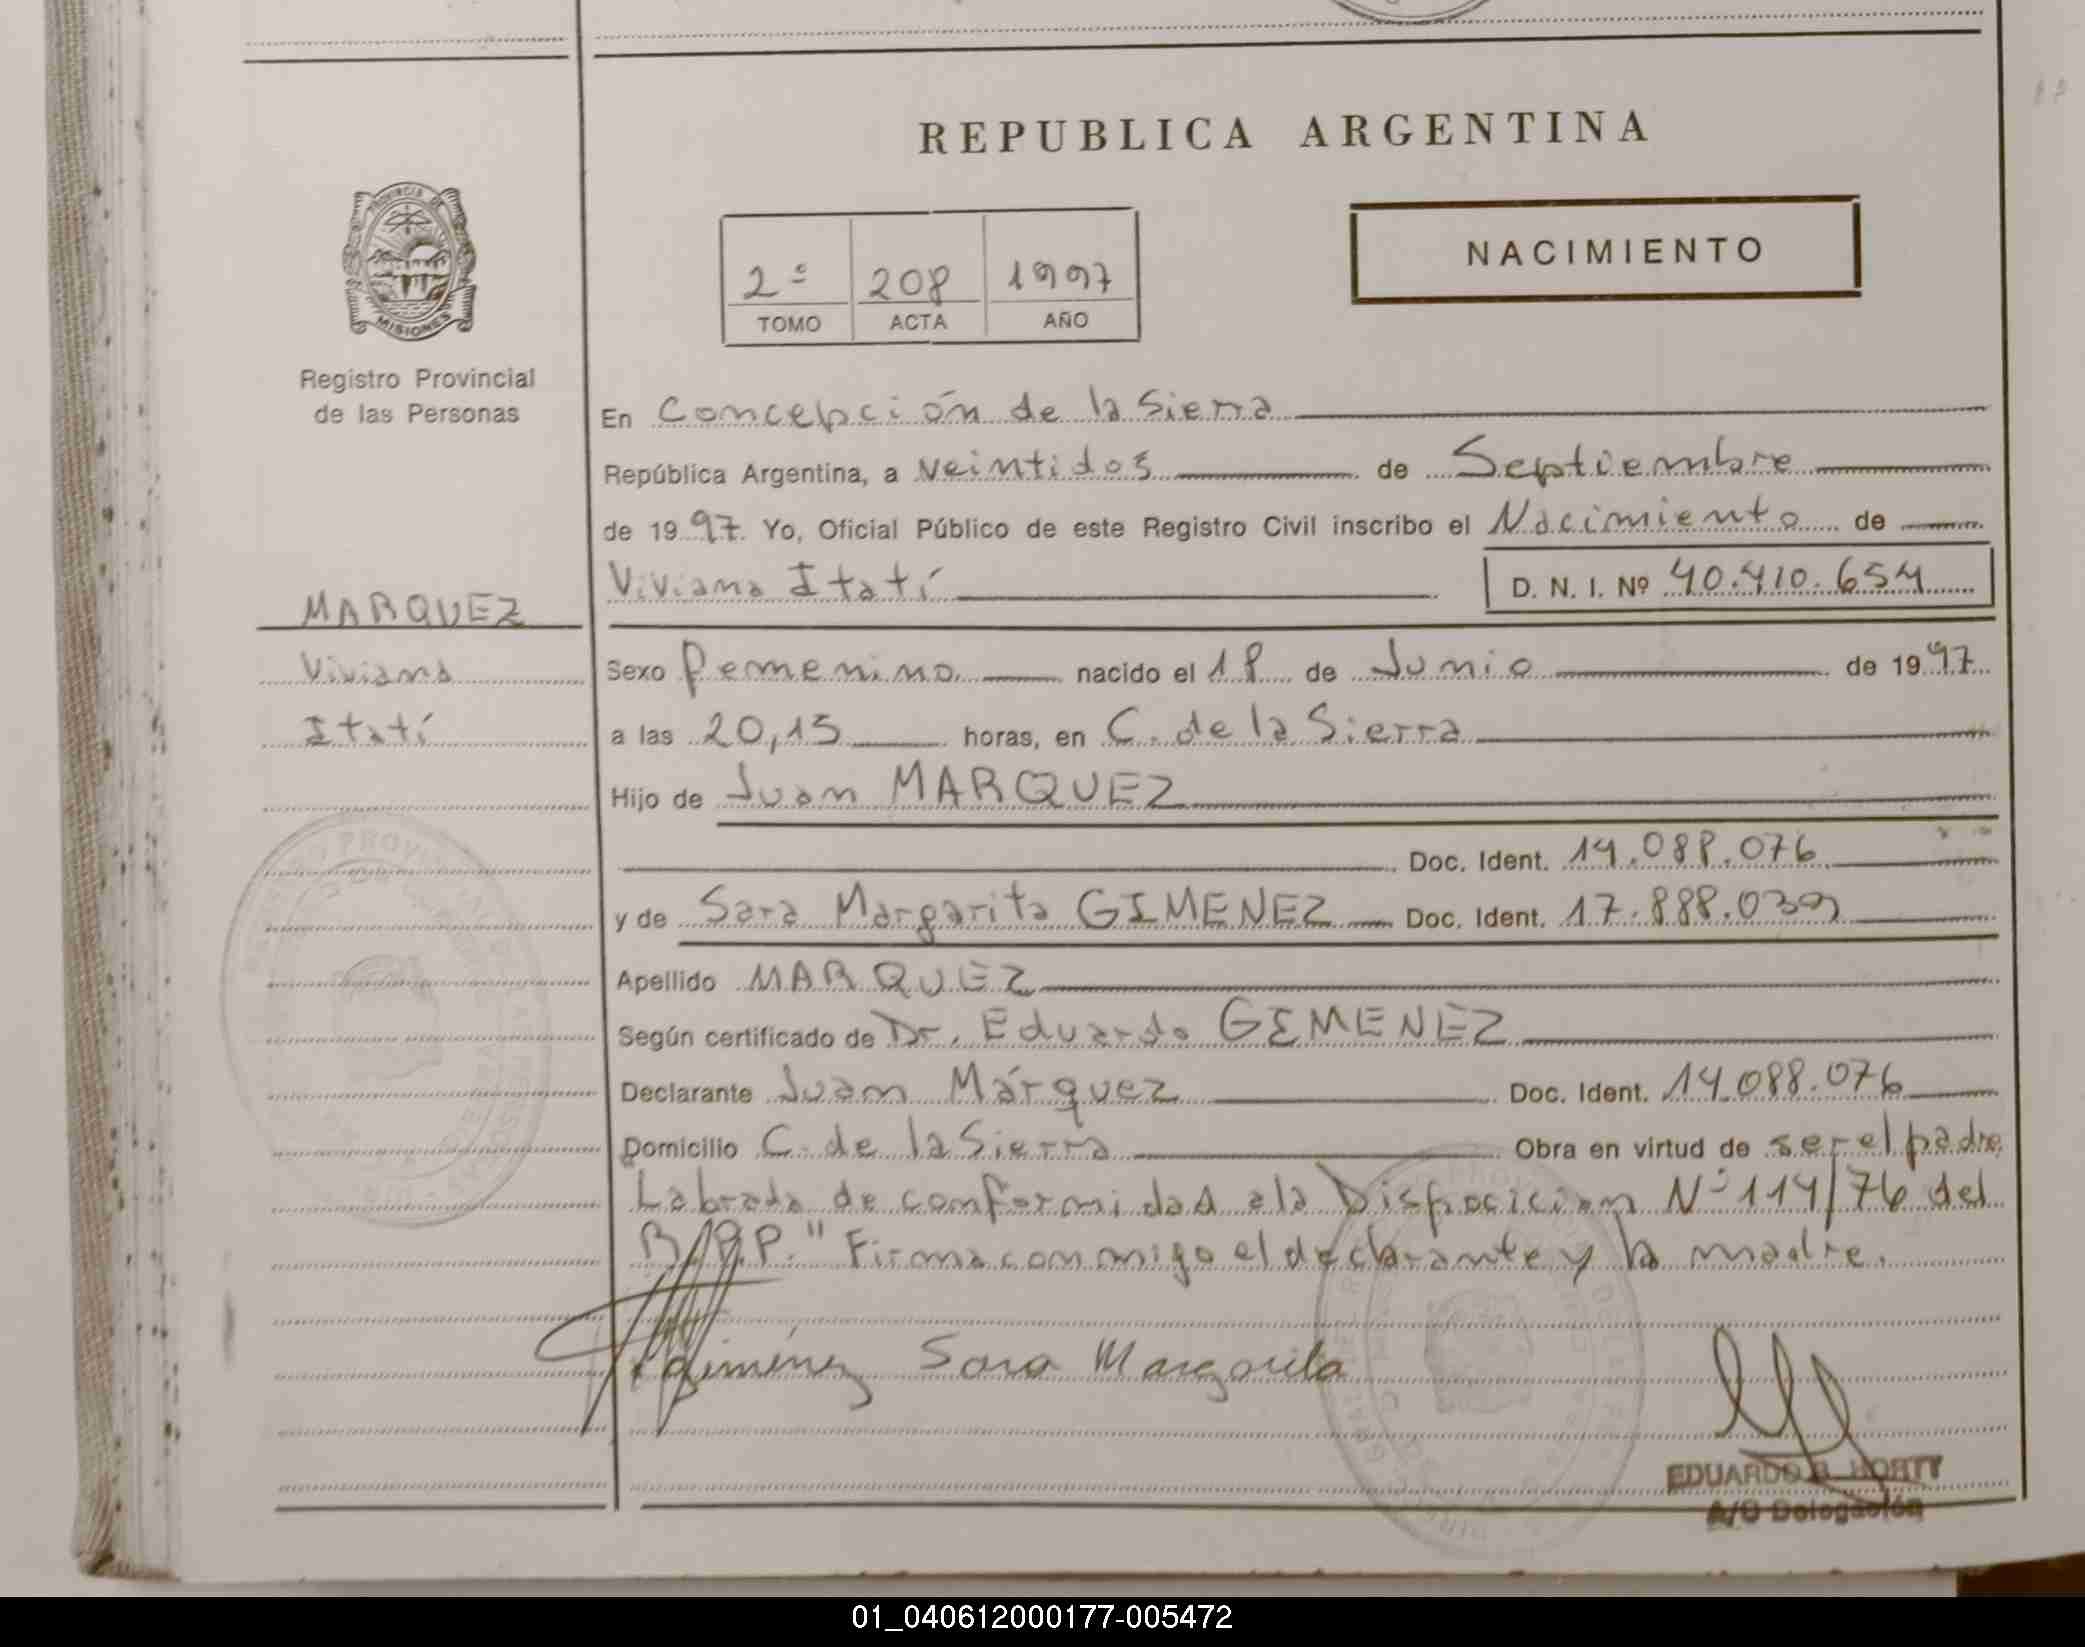 REPUBLICA ARGENTINA
NACIMIENTO
2º 208 1997
TOMO ACTA AÑO
PROVINCIA DE
MISIONES
Registro Provincial
de las Personas
En Concepción de la Sierra
República Argentina, a veintidos de Septiembre
de 1997. Yo, Oficial Público de este Registro Civil inscribo el Nacimiento de
Viviana Itatí D. N. I. Nº 40.410.654
MARQUEZ
Viviana
Itatí
Sexo femenino nacido el 18 de Junio de 1997
a las 20,15 horas, en C. de la Sierra
Hijo de Juan MARQUEZ
Doc. Ident. 14.088.076
y de Sara Margarita GIMENEZ Doc. Ident. 17.888.039
Apellido MARQUEZ
Según certificado de Dr. Eduardo GIMENEZ
Declarante Juan Márquez Doc. Ident. 14.088.076
Domicilio C. de la Sierra Obra en virtud de ser el padre
Labrada de conformidad a la Disposición Nº 114/76 del
R.P.P." Firma conmigo el declarante y la madre.
Giménez Sara Margarita
EDUARDO R. HORTT
A/C Delegación
01_040612000177-005472